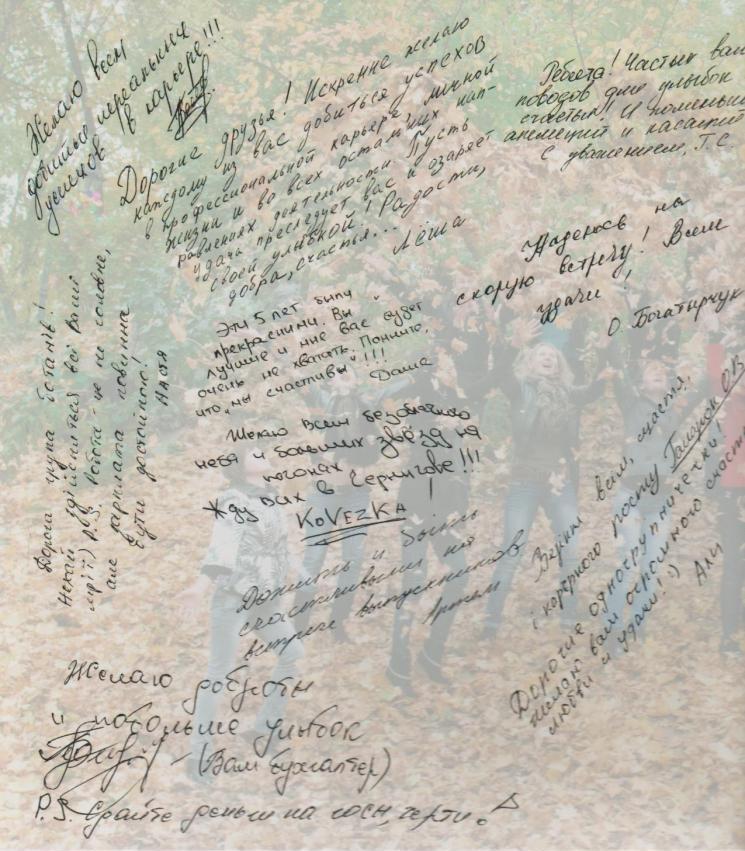 Желаю всем
успехов
в карьере!!!
Дорогие друзья! Искренне желаю
каждому из вас добиться успехов
в профессиональной карьере, личной
жизни и во всех остальных нап-
равлениях деятельности. Пусть
удача преследует вас и озаряет
своей улыбкой! Радости,
добра, счастья...
Лёша
Ребята! Частых вам
поводов для улыбок
счастья!! И поменьше
апелляций и кассаций
С уважением, Г. С.
Надеюсь на
скорую встречу! Всем
удачи!
О. Богатирчук
Эти 5 лет были
прекрасними. Вы
лучшие и мне вас будет
очень не хватать. Помните,
что "мы счастливы"!!!
Даша
Дорога група!
Нехай здійсняться всі Ваші
мрії!) P.S. Робота - це не головне,
але зарплата повинна
бути достойною!
Настя
Желаю всем безоблачного
неба и больших звёзд на
погонах
Жду всех в Чернигове!!!
KOVEZKA!
Дожить и быть
счастливыми на
встрече выпускников
Артем
всім, щастя,
і карєрного росту
Дорогие одногруппнички!
Желаю вам огромного счастья
любви и удачи! :)
Али
Желаю доброты
и побольше улыбок
- (Ваш бухгалтер)
P.S. Сдайте деньги на госы, черти!